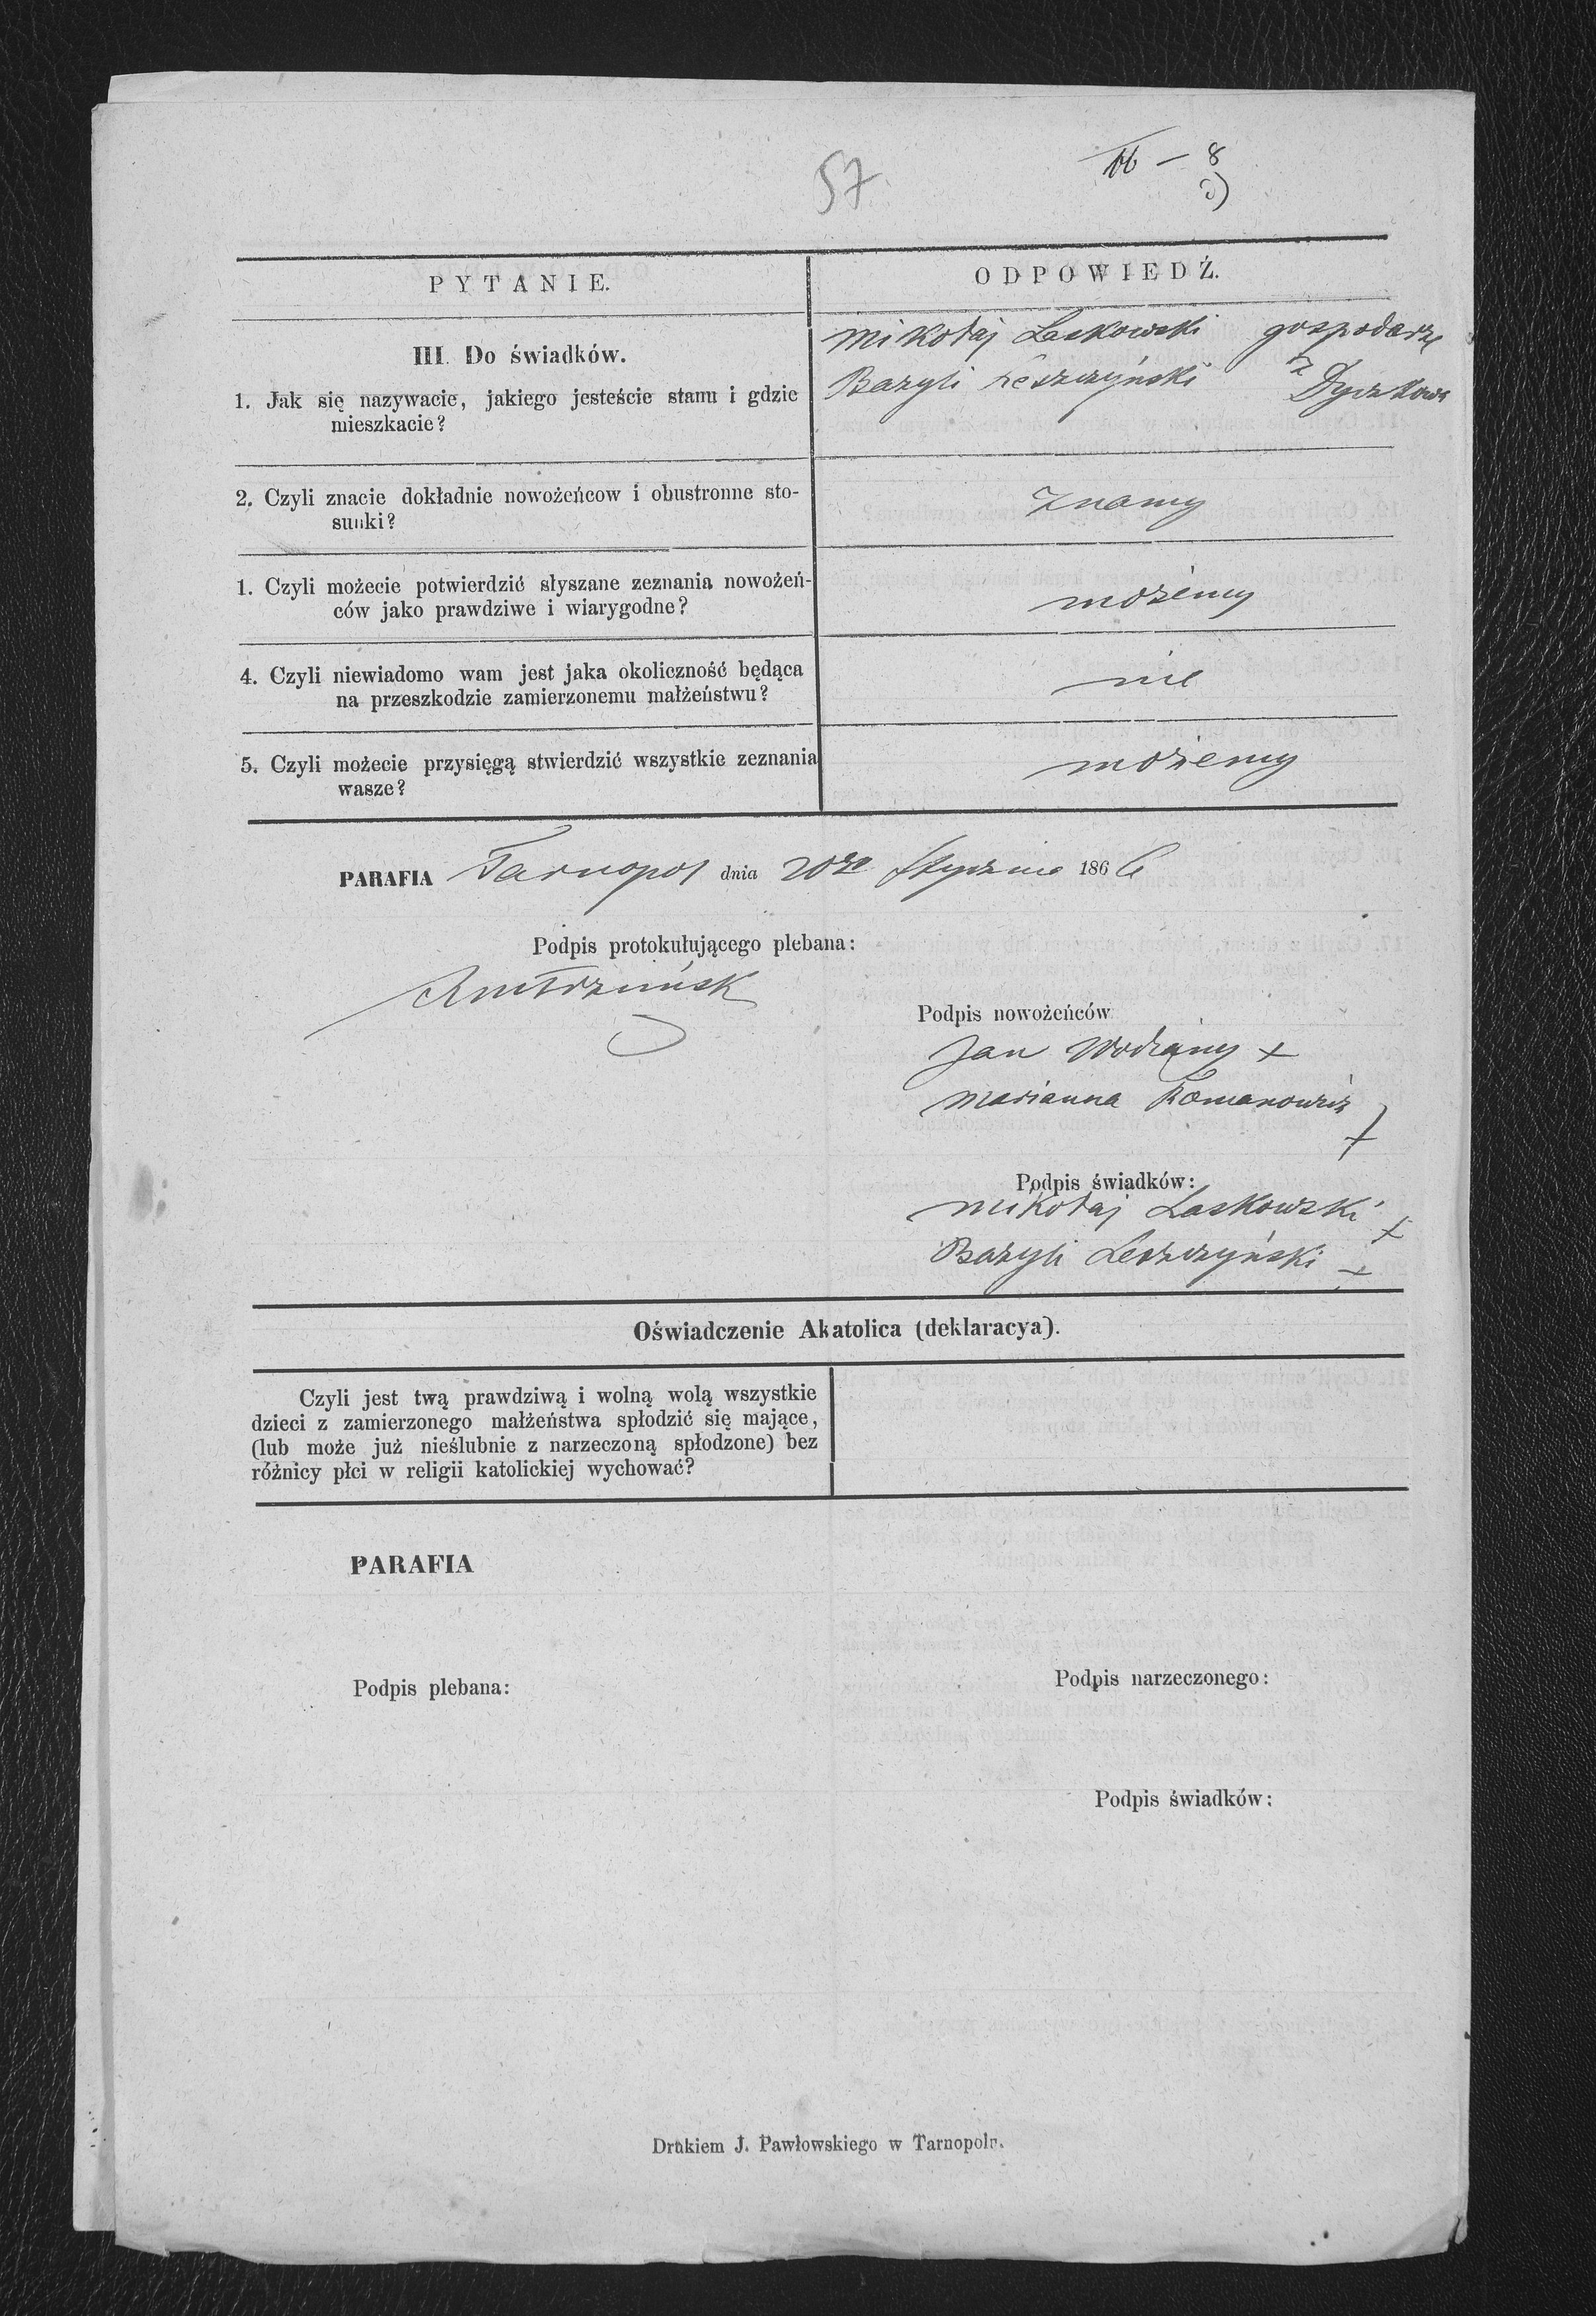 57
8
PYTANIE.
ODPOWIEDŹ.
III. Do świadków.
1. Jak się nazywacie, jakiego jesteście stanu i gdzie
mieszkacie?
Mikołaj Laskowski gospodarze
Bazyli Leszczyński z Dyczkowa
2. Czyli znacie dokładnie nowożeńcow i obustronne sto-
sunki?
Znamy
1. Czyli możecie potwierdzić słyszane zeznania nowożeń-
ców jako prawdziwe i wiarygodne?
możemy
4. Czyli niewiadomo wam jest jaka okoliczność będąca
na przeszkodzie zamierzonemu małżeństwu?
nie
5. Czyli możecie przysięgą stwierdzić wszystkie zeznania
wasze?
możemy
PARAFIA Tarnopol dnia 20go Stycznia 1866
Podpis protokułującego plebana:
Podpis nowożeńców
Jan Wodziany +
Marianna Romanowicz
+
Podpis świadków:
Mikołaj Laskowski +
Bazyli Leszczyński +
Oświadczenie Akatolica (deklaracya).
Czyli jest twą prawdziwą i wolną wolą wszystkie
dzieci z zamierzonego małżeństwa spłodzić się mające,
(lub może już nieślubnie z narzeczoną spłodzone) bez
różnicy płci w religii katolickiej wychować?
PARAFIA
Podpis plebana:
Podpis narzeczonego:
Podpis świadków:
Drukiem J. Pawłowskiego w Tarnopolu.